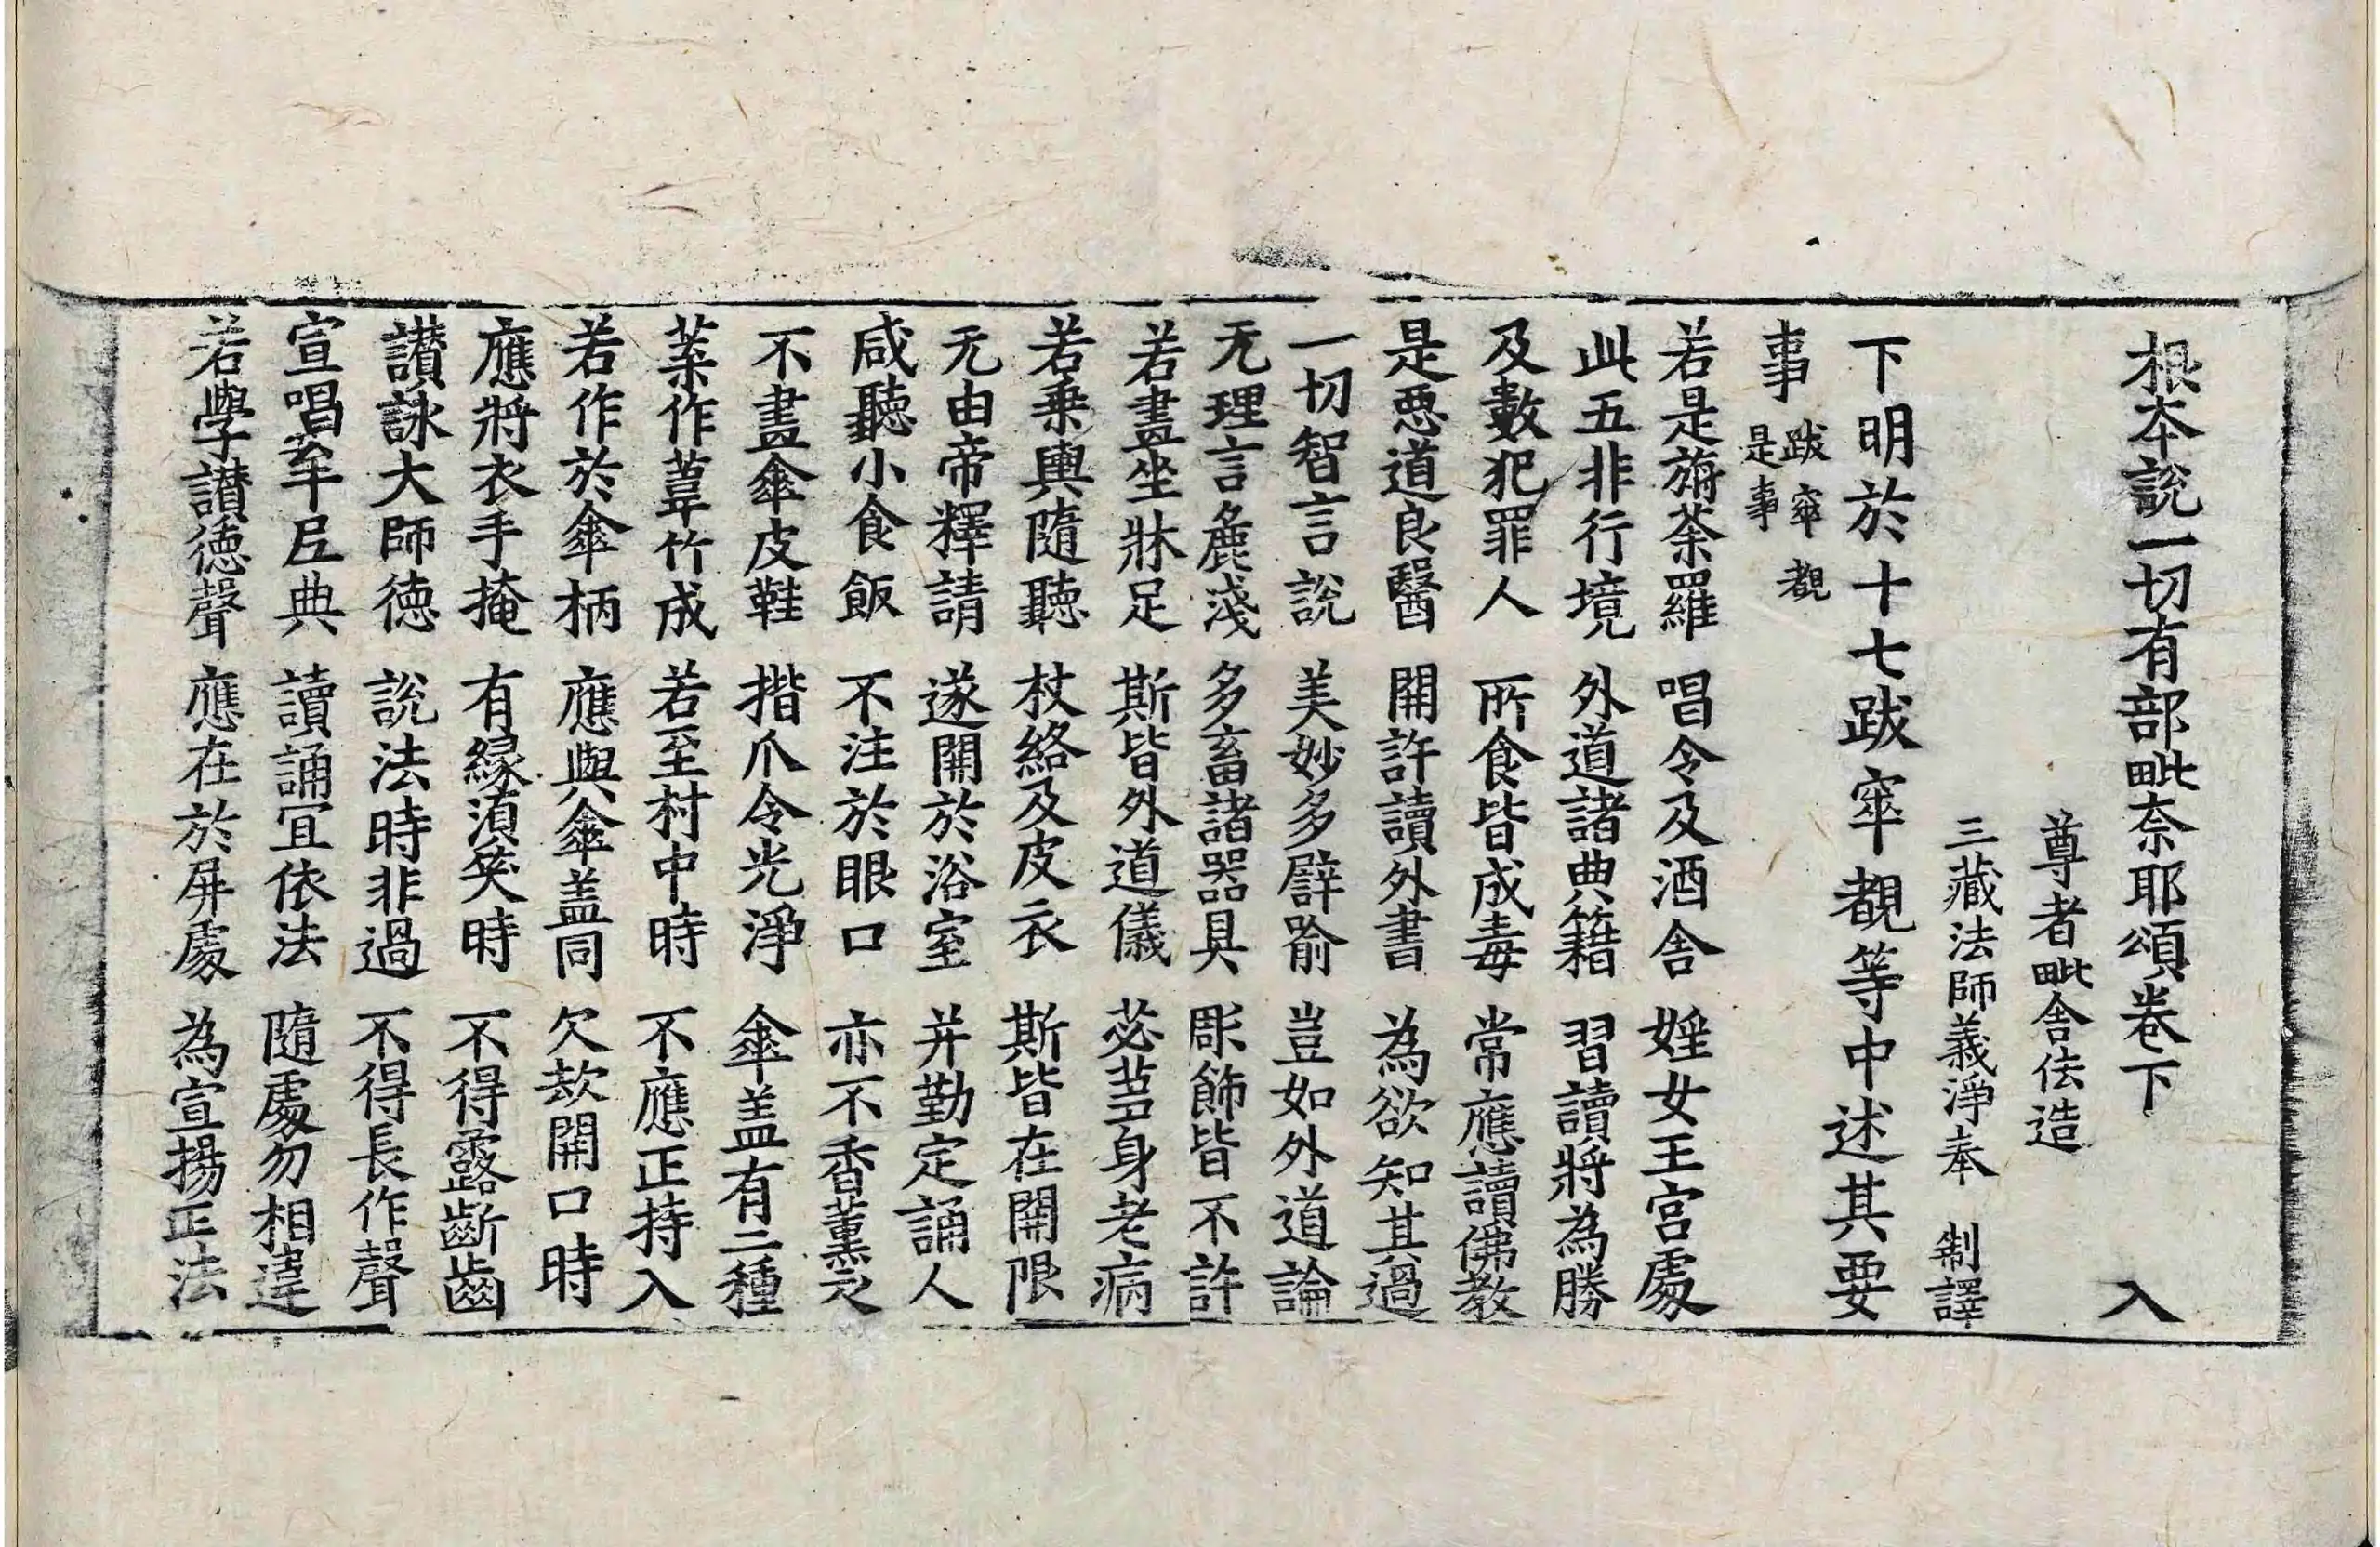 根本說一切有部毗奈耶頌卷下 入
尊者毗舍佉造
三藏法師義淨奉 制譯
下明於十七跋窣覩等中述其要
事 跋窣覩
是事
若是旃荼羅 唱令及酒舍 婬女王宮處
此五非行境 外道諸典籍 習讀將為勝
及數犯罪人 所食皆成毒 常應讀佛教
是惡道良醫 開許讀外書 為欲知其過
一切智言說 美妙多譬喻 豈如外道論
无理言麁淺 多畜諸器具 彫飾皆不許
若晝坐牀足 斯皆外道儀 苾芻身老病
若乘輿隨聽 杖絡及皮衣 斯皆在開限
无由帝釋請 遂開於浴室 并勤定誦人
咸聽小食飯 不注於眼口 亦不香薰之
不畫傘皮鞋 揩爪令光淨 傘盖有二種
葉作葦竹成 若至村中時 不應正持入
若作於傘柄 應與傘盖同 欠欬開口時
應將衣手掩 有緣湏笑時 不得露齗齒
讃詠大師德 說法時非過 不得長作聲
宣唱 典 讀誦宜依法 隨處勿相違
若學讃德聲 應在於屏處 為宣揚正法